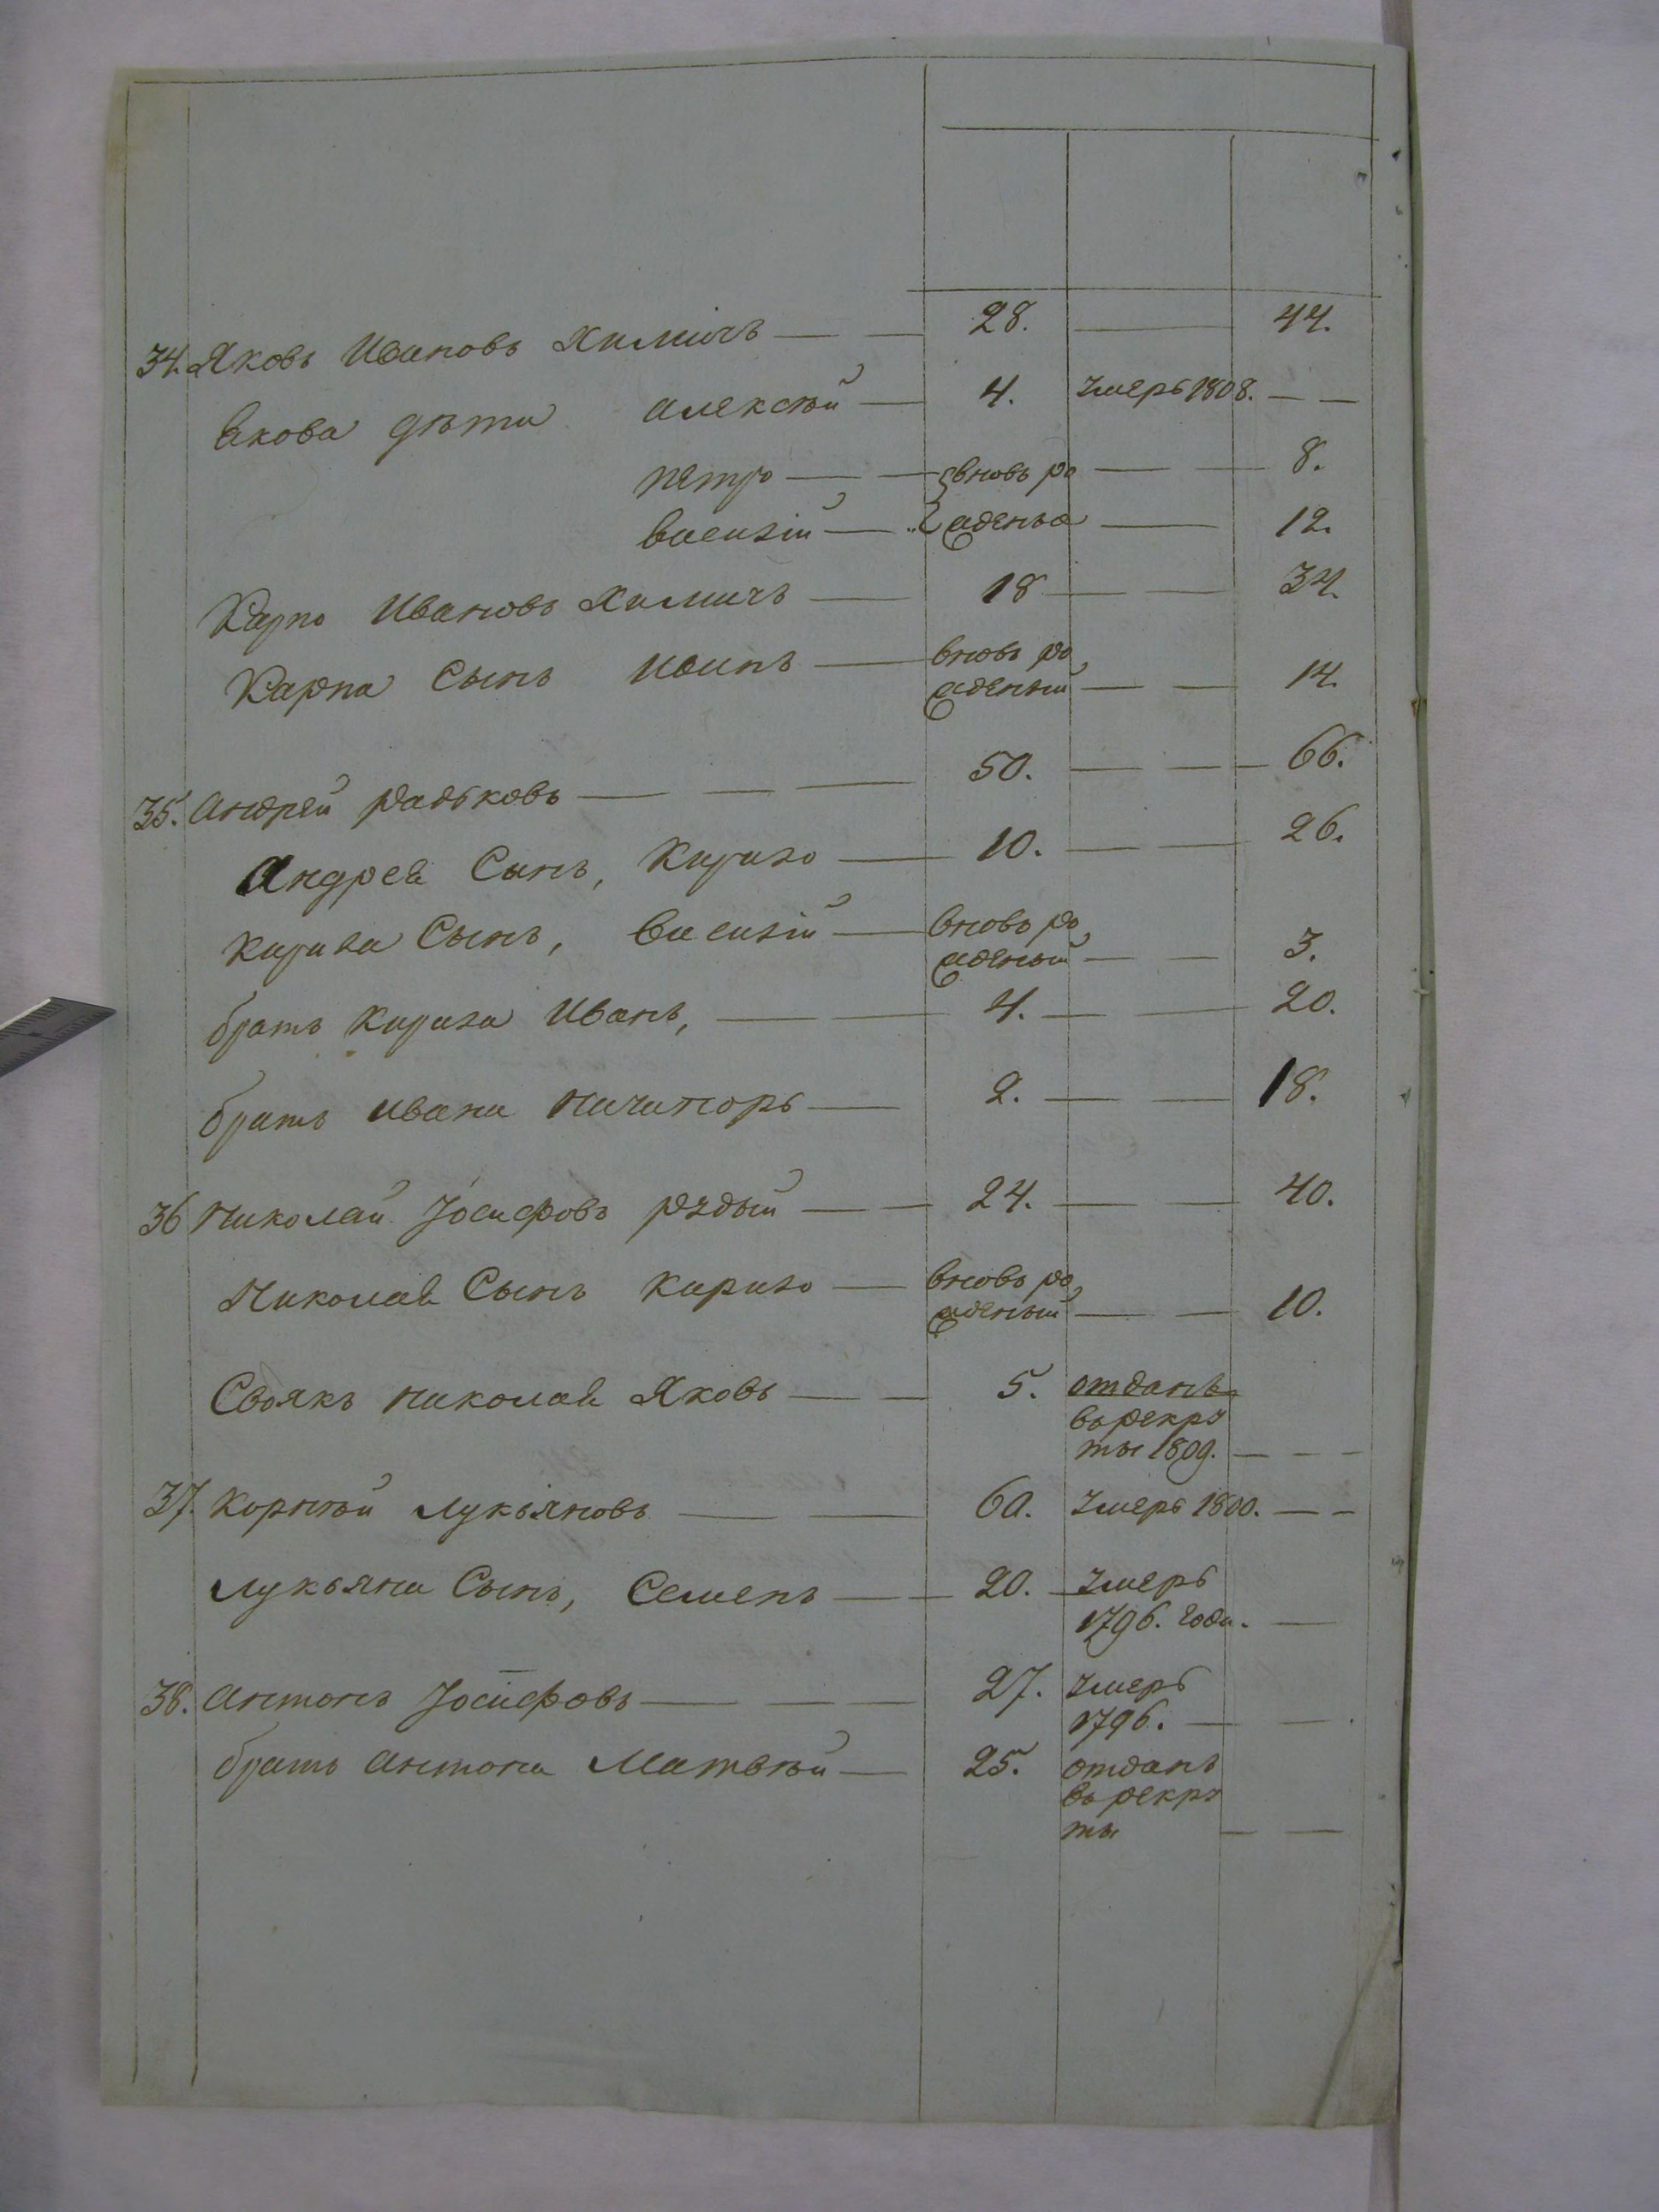 34. Яковъ Ивановъ Химичъ — — 28. — 44.
Якова дѣти Алексѣй — 4. Умеръ 1808. — —
Петро — — вновь ро — — 8.
Василій — жденые — 12.
Карпо Ивановъ Химичъ — 18 — — 34.
Карпа Сынъ — вновь ро
жденный — — 14.
35. Андрей Радьковъ — — — 50. — — — 66.
Андрея Сынъ, Кирило — 10. — — 26.
Кирила Сынъ, Василій — вновь ро
жденный — — 3.
братъ Кирила Иванъ, — — 4. — — 20.
братъ Ивана Ничипоръ — 2. — — 18.
36 Николай Іосифовъ Рудый — — 24. — — 40.
Николая Сынъ Кирило — вновь ро
жденный — — 10.
Своякъ Николая Яковъ — — 5. отданъ
въ рекру
ты 1809. — — —
37. Корнѣй Лукьяновъ — — 60. Умеръ 1800. — —
Лукьяна Сынъ, Семенъ — — 20. Умеръ
1796. года. —
38. Антонъ Іосифовъ — — — 27. Умеръ
1796. — —
братъ Антона Матвѣй — 25. отданъ
въ рекру
ты — —